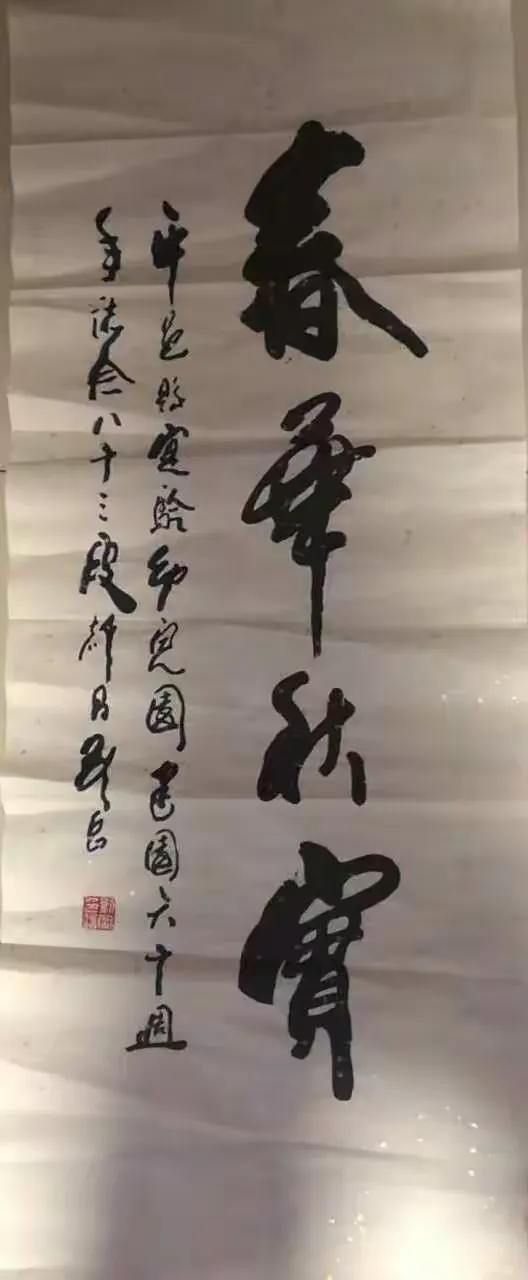 春華秋實
平邑縣實驗幼兒園建園六十週
年誌念八十三叟